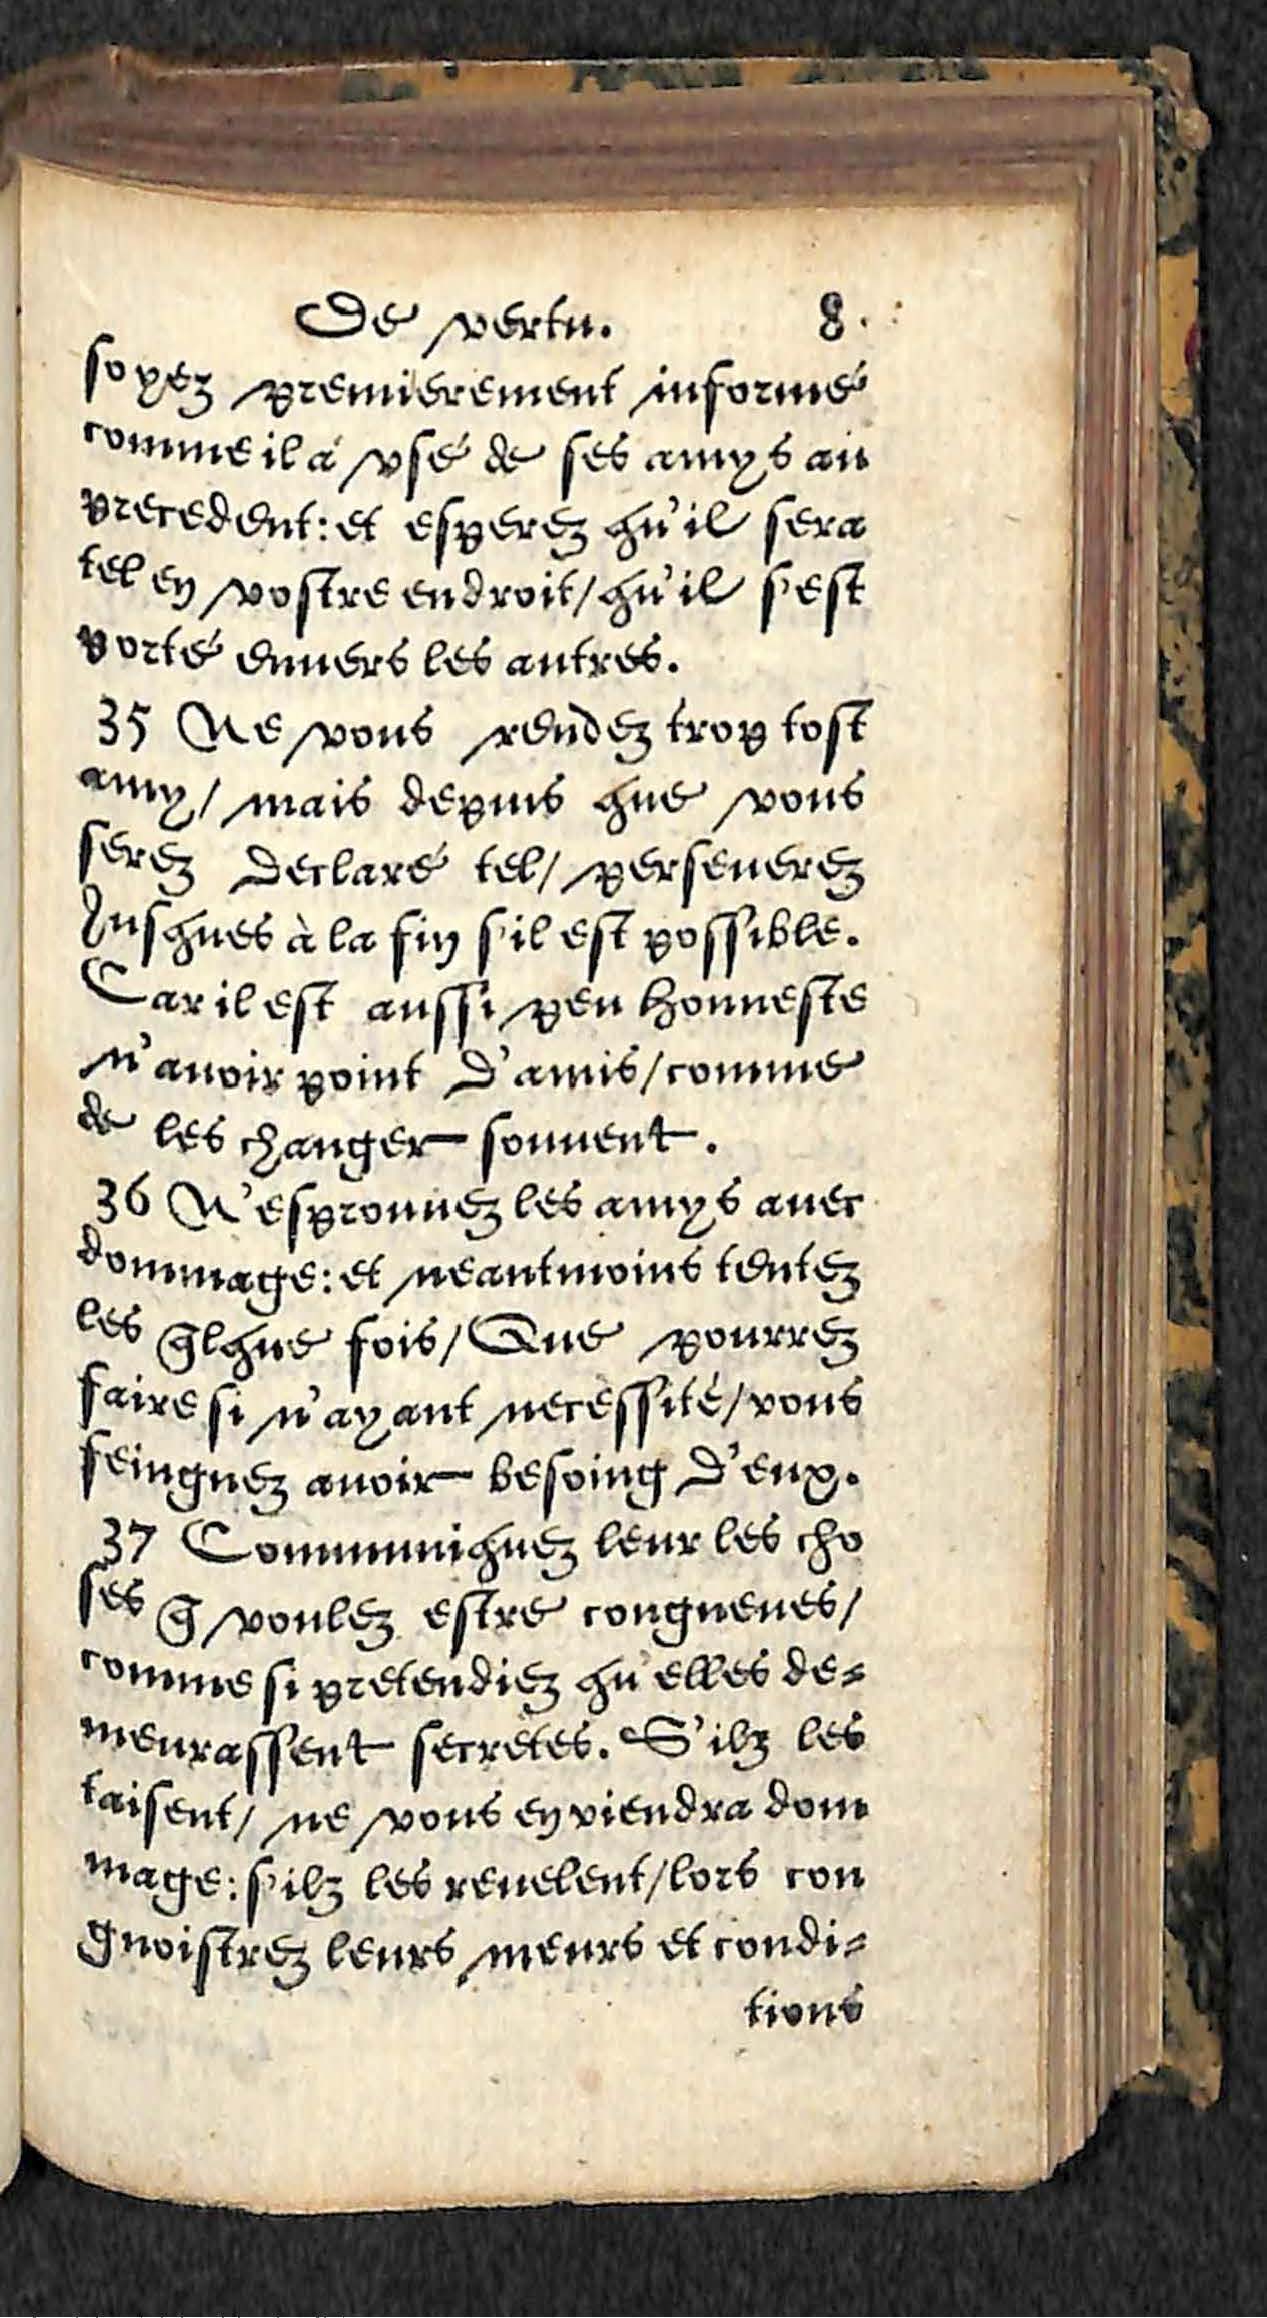 De vertu. 8.
soyez premierement informé
comme il á vsé de ses amys au
precedent: et esperez qu'il sera
tel en vostre endroit/ qu'il s'est
porté enuers les autres.
35 Ne vous rendez trop tost
amy/ mais depuis que vous
serez declaré tel/ perseuerez
Jusques à la fin s'il est possible.
Car il est aussi peu honneste
n'auoir point d'amis/ comme
de les changer souuent.
36 N'esprouuez les amys auec
dommage: et neantmoins tentez
les q̃lque fois/ Que pourrez
faire si n'ayant necessité/ vous
feingnez auoir besoing d'eux.
37 Communiquez leur les cho
ses q̃ voulez estre congneues/
comme si pretendiez qu'elles de-
meurassent secretes. S'ilz les
taisent/ ne vous en viendra dom
mage: s'ilz les reuelent/ lors con
gnoistrez leurs meurs et condi-
tions